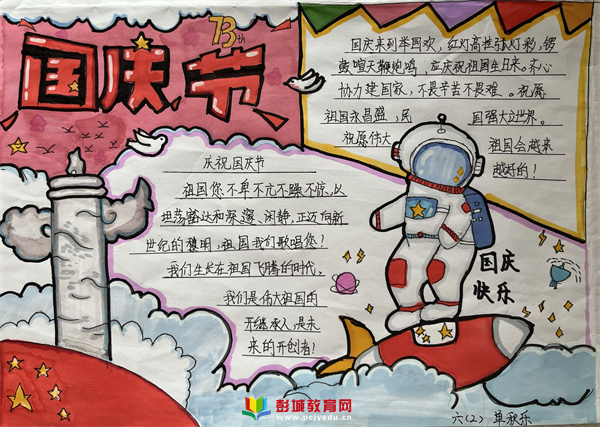 国庆节
73th
国庆来到举国欢,红灯高挂张灯彩,锣
鼓喧天鞭炮鸣,应庆祝祖国生日来。齐心
协力建国家,不畏辛苦不畏难。祝愿
祖国永昌盛,民
国强大立世界。
祝愿伟大
祖国会越来
越好的!
庆祝国庆节
祖国您不卑不亢不躁不惊,以
坦荡豁达和深邃、闲静,正迈向新
世纪的黎明,祖国我们歌唱您!
我们生长在祖国飞腾的时代,
我们是伟大祖国的
继承人,是未
来的开创者!
国庆
快乐
彭城教育网
www.pcjyedu.cn
六(2) 单秋乐